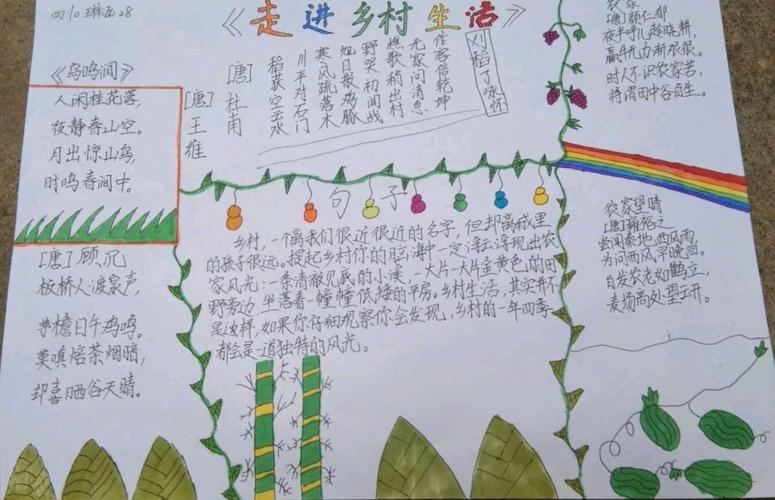 四10 28
《走进乡村生活》
《鸟鸣涧》
人闲桂花落,
夜静春山空。
月出惊山鸟,
时鸣春涧中。
[唐]王维
[唐]顾况
板桥人渡泉声,
茅檐日午鸡鸣。
莫嗔焙茶烟暗,
却喜晒谷天晴。
刈稻了咏怀
[唐]杜甫
稻获空云水
川平对石门
寒风疏落木
旭日散鸡豚
野哭初闻战
樵歌稍出村
无家问消息
作客信乾坤
句子
乡村,一个离我们很近很近的名字,但却离城里
的孩子很远。提起乡村你的脑海中一定浮现出农
家风光:一条清澈见底的小溪,一大片一大片金黄色的田
野旁边,坐落着一幢幢低矮的平房。乡村生活,其实并不
是这样,如果你仔细观察你会发现,乡村的一年四季
都会是一道独特的风光。
农家
[唐]颜仁郁
夜半呼儿趁晓耕,
羸牛无力渐艰难。
时人不识农家苦,
将谓田中谷自生。
农家望晴
[唐]雍裕之
尝闻秦地西风雨,
为问西风早晚回。
白发农老如鹤立,
麦场高处望云开。